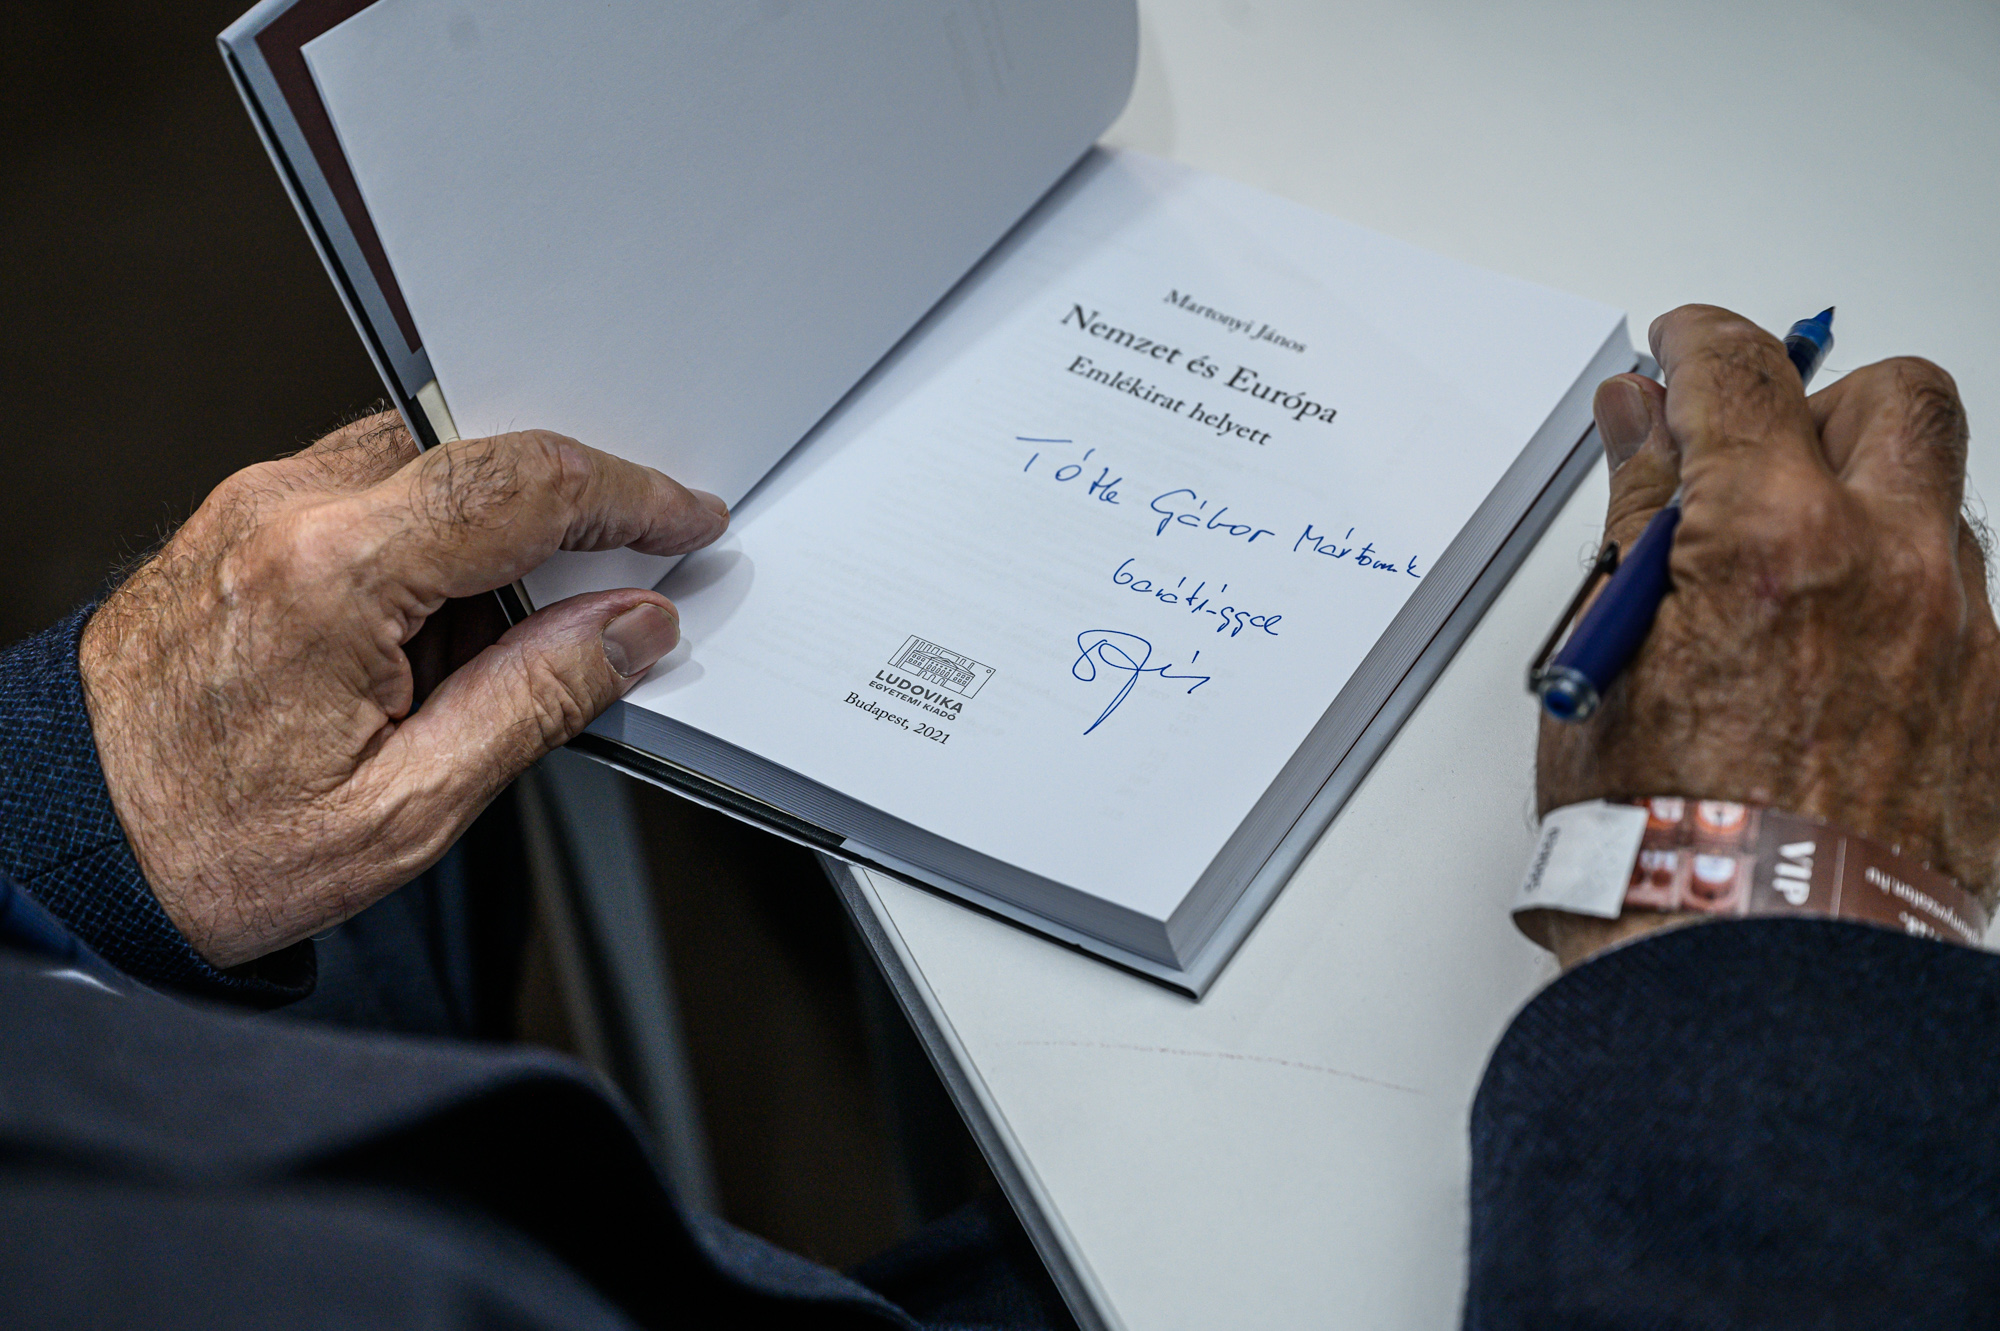 Martonyi János
Nemzet és Európa
Emlékirat helyett
Tóth Gábor Mártonnak
barátsággal
LUDOVIKA
EGYETEMI KIADÓ
Budapest, 2021
VIP